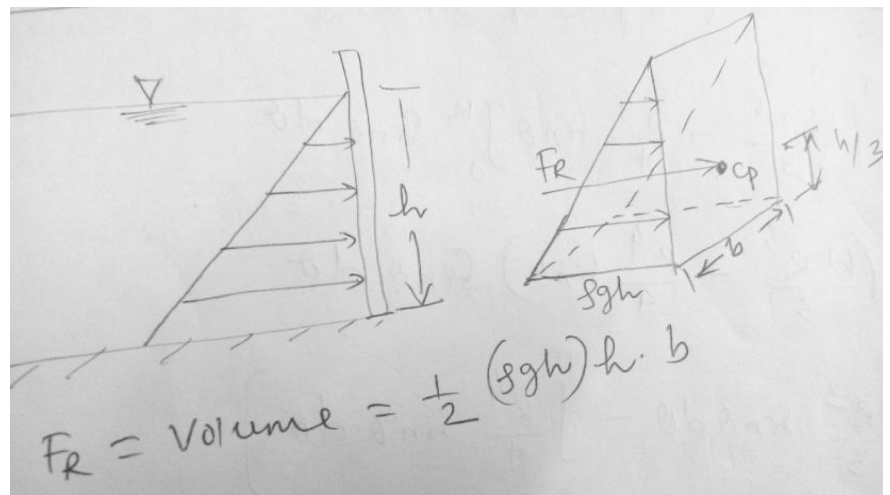 h
FR
cp
h/3
b
ρgh
FR = Volume = 1/2 (ρgh) h · b